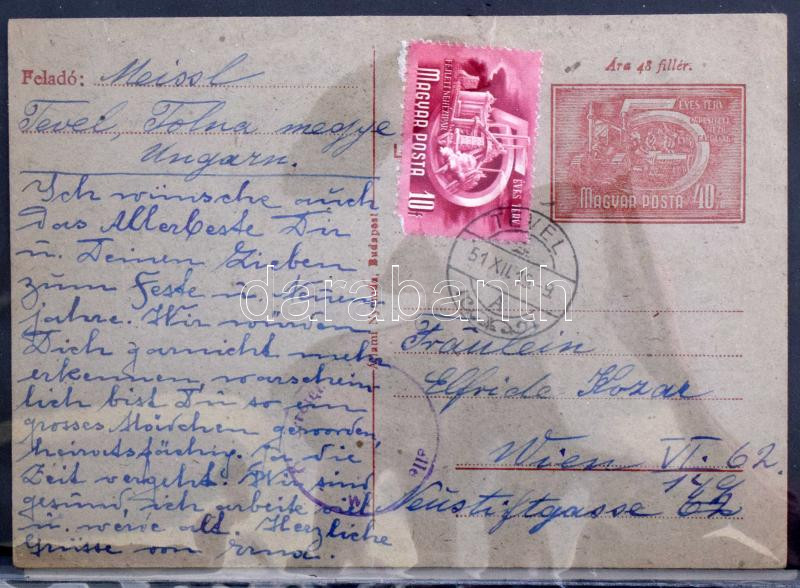 Feladó: Meissl
Tevel, Tolna megye
Ungarn.
Ich wünsche auch
das Allerbeste Dir
u. Deinen Lieben
zum Feste u. Neuen
jahre. Wir würden
Dich garnicht mehr
erkennen, warschein
lich bist Du so ein
grosses Mädchen geworden,
heiratsfächig. Ja die
Zeit vergeht. Wir sind
gesund, ich arbeite viel
u. werde alt. Herzliche
Grüsse von Erna.
Nyomda, Budapest
MAGYAR POSTA
5 ÉVES TERV
10f
Ára 48 fillér.
5 ÉVES TERV
MAGYAR POSTA 40f
TEVEL
51 XII.
Fräulein
Elfride Kozar
Wien VI. 62.
Neustiftgasse
darabanth